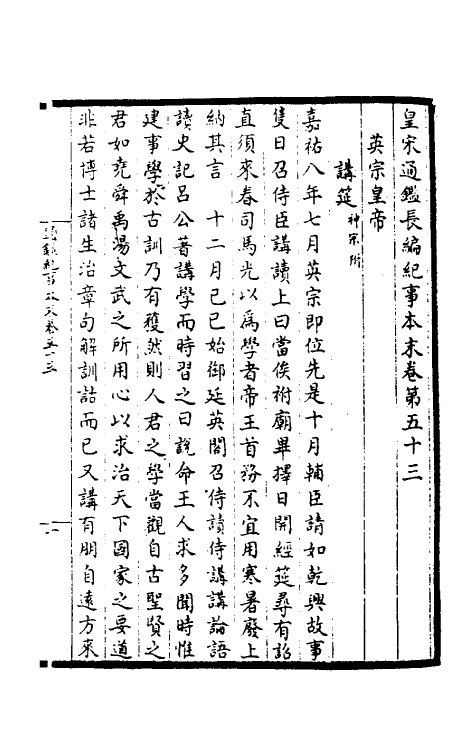 皇宋通鑑長編紀事本末卷第五十三
英宗皇帝
講筵神宗附
嘉祐八年七月英宗即位先是十月輔臣請如乾興故事
隻日召侍臣講讀上曰當俟祔廟畢擇日開經筵尋有詔
直須來春司馬光以爲學者帝王首務不宜用寒暑廢上
納其言　十二月己巳始御延英閣召侍讀侍講講論語
讀史記呂公著講學而時習之曰說命王人求多聞時惟
建事學於古訓乃有獲然則人君之學當觀自古聖賢之
君如堯舜禹湯文武之所用心以求治天下國家之要道
非若博士諸生治章句解訓詁而已又講有朋自遠方來